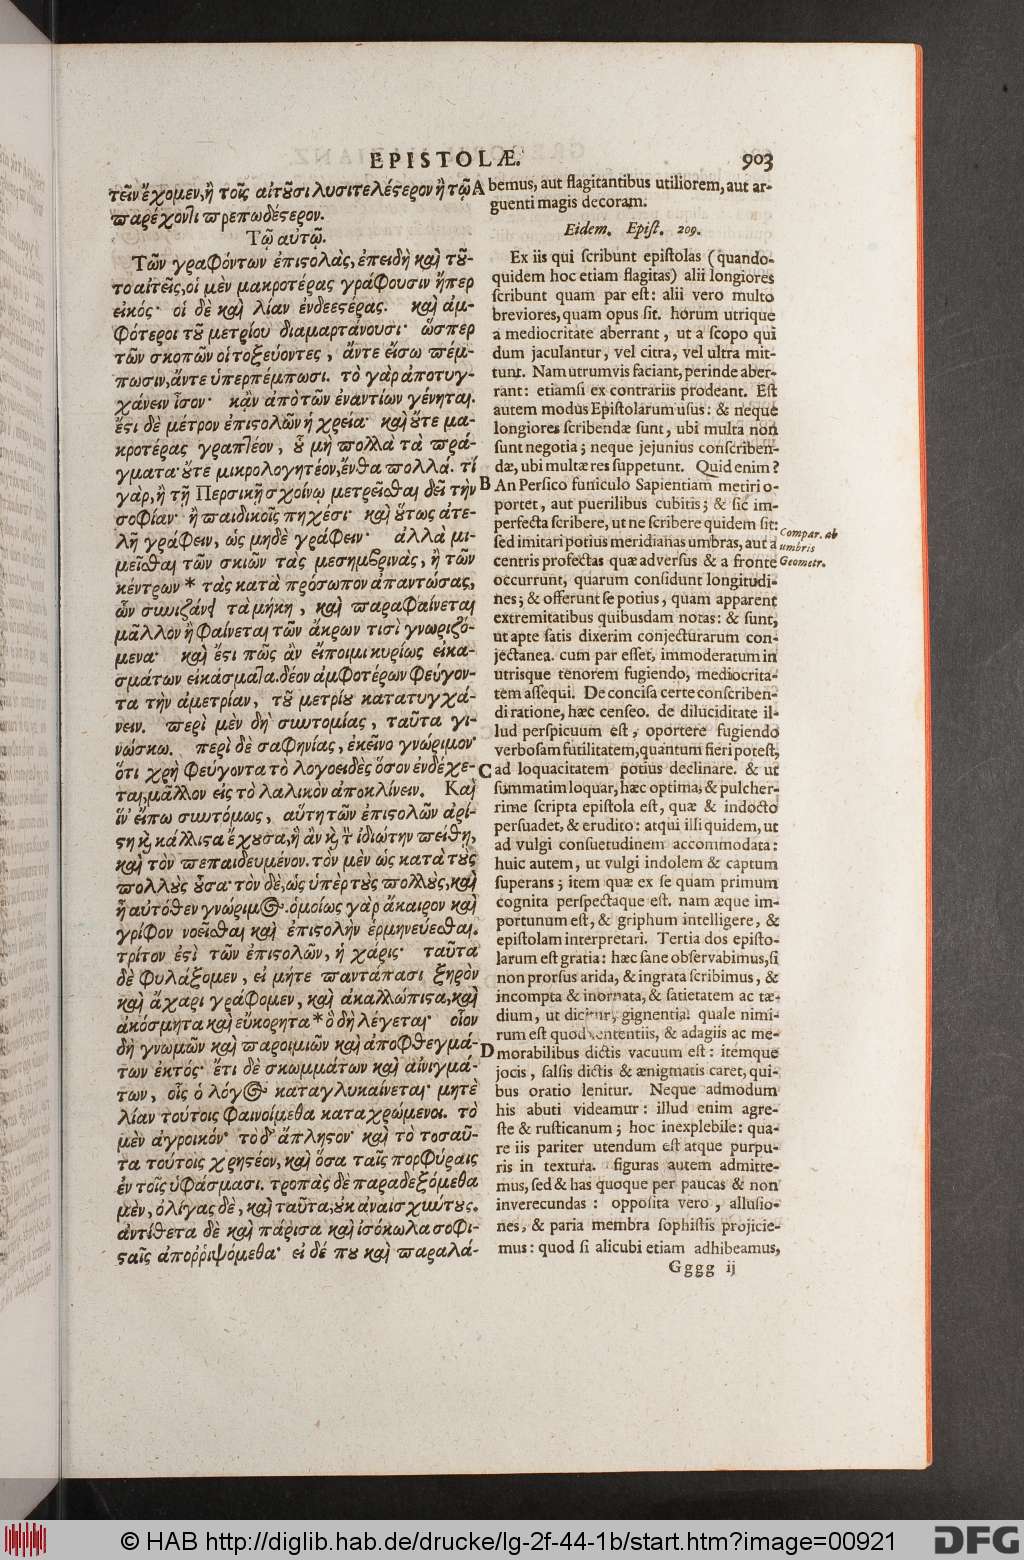 EPISTOLÆ. 903
τεῖν ἔχομεν, ἢ τοῖς αἰτοῦσι λυσιτελέςερον ἢ τῷ
παρέχοντι πρεπωδέςερον.
Τῷ αὐτῷ.
Τῶν γραφόντων ἐπιςολὰς, ἐπειδὴ καὶ τοῦ-
το αἰτεῖς, οἱ μὲν μακροτέρας γράφουσιν ἥπερ
εἰκός· οἱ δὲ καὶ λίαν ἐνδεεςέρας. καὶ ἀμ-
φότεροι τοῦ μετρίου διαμαρτάνουσι· ὥσπερ
τῶν σκοπῶν οἱ τοξεύοντες, ἄντε εἴσω πέμ-
πωσιν, ἄντε ὑπερπέμπωσι. τὸ γὰρ ἀποτυγ-
χάνειν ἶσον· κἂν ἀπὸ τῶν ἐναντίων γένηται.
ἔςι δὲ μέτρον ἐπιςολῶν ἡ χρεία· καὶ οὔτε μα-
κροτέρας γραπτέον, οὗ μὴ πολλὰ τὰ πρά-
γματα· οὔτε μικρολογητέον, ἔνθα πολλά. τί
γὰρ, ἢ τῇ Περσικῇ σχοίνῳ μετρεῖσθαι δεῖ τὴν
σοφίαν· ἢ παιδικοῖς πηχέσι· καὶ οὕτως ἀτε-
λῆ γράφειν, ὡς μηδὲ γράφειν· ἀλλὰ μι-
μεῖσθαι τῶν σκιῶν τὰς μεσημβρινὰς, ἢ τῶν
κέντρων * τὰς κατὰ πρόσωπον ἀπαντώσας,
ὧν συνιζάνει τὰ μήκη, καὶ παραφαίνεται
μᾶλλον ἢ φαίνεται τῶν ἄκρων τισὶ γνωριζό-
μενα· καὶ ἔςι πῶς ἂν εἴποιμι κυρίως εἰκα-
σμάτων εἰκάσματα. δέον ἀμφοτέρων φεύγον-
τα τὴν ἀμετρίαν, τοῦ μετρίου κατατυγχά-
νειν. περὶ μὲν δὴ συντομίας, ταῦτα γι-
νώσκω. περὶ δὲ σαφηνίας, ἐκεῖνο γνώριμον·
ὅτι χρὴ φεύγοντα τὸ λογοειδὲς ὅσον ἐνδέχε-
ται, μᾶλλον εἰς τὸ λαλικὸν ἀποκλίνειν. Καὶ
ἵν' εἴπω συντόμως, αὕτη τῶν ἐπιςολῶν ἀρί-
ςη καὶ κάλλιςα ἔχουσα, ἣ ἂν καὶ τὸν ἰδιώτην πείθῃ,
καὶ τὸν πεπαιδευμένον. τὸν μὲν ὡς κατὰ τοὺς
πολλοὺς οὖσα· τὸν δὲ, ὡς ὑπὲρ τοὺς πολλοὺς, καὶ
ᾖ αὐτόθεν γνώριμος. ὁμοίως γὰρ ἄκαιρον καὶ
γρίφον νοεῖσθαι καὶ ἐπιςολὴν ἑρμηνεύεσθαι.
τρίτον ἐςὶ τῶν ἐπιςολῶν, ἡ χάρις· ταῦτα
δὲ φυλάξομεν, εἰ μήτε παντάπασι ξηρὸν
καὶ ἄχαρι γράφομεν, καὶ ἀκαλλώπιςα, καὶ
ἀκόσμητα καὶ εὔκορητα * ὃ δὴ λέγεται· οἷον
δὴ γνωμῶν καὶ παροιμιῶν καὶ ἀποφθεγμά-
των ἐκτός· ἔτι δὲ σκωμμάτων καὶ αἰνιγμά-
των, οἷς ὁ λόγος καταγλυκαίνεται· μητὲ
λίαν τούτοις φαινοίμεθα καταχρώμενοι. τὸ
μὲν ἀγροικόν· τὸ δ' ἄπληςον· καὶ τὸ τοσαῦ-
τα τούτοις χρηςέον, καὶ ὅσα ταῖς πορφύραις
ἐν τοῖς ὑφάσμασι. τροπὰς δὲ παραδεξόμεθα
μὲν, ὀλίγας δὲ, καὶ ταῦτα, οὐκ ἀναισχύντους.
ἀντίθετα δὲ καὶ πάρισα καὶ ἰσόκωλα σοφι-
ςαῖς ἀποῤῥιψόμεθα· εἰ δέ που καὶ παραλά-
A bemus, aut flagitantibus utiliorem, aut ar-
guenti magis decoram.
Eidem. Epist. 209.
Ex iis qui scribunt epistolas (quando-
quidem hoc etiam flagitas) alii longiores
scribunt quam par est: alii vero multo
breviores, quam opus sit. horum utrique
a mediocritate aberrant, ut a scopo qui
dum jaculantur, vel citra, vel ultra mit-
tunt. Nam utrumvis faciant, perinde aber-
rant: etiamsi ex contrariis prodeant. Est
autem modus Epistolarum usus: & neque
longiores scribendæ sunt, ubi multa non
sunt negotia; neque jejunius conscriben-
dæ, ubi multæ res suppetunt. Quid enim?
B An Persico funiculo Sapientiam metiri o-
portet, aut puerilibus cubitis; & sic im-
perfecta scribere, ut ne scribere quidem sit:
sed imitari potius meridianas umbras, aut a
centris profectas quæ adversus & a fronte
occurrunt, quarum considunt longitudi-
nes; & offerunt se potius, quam apparent
extremitatibus quibusdam notas: & sunt,
ut apte satis dixerim conjecturarum con-
jectanea. cum par esset, immoderatum in
utrisque tenorem fugiendo, mediocrita-
tem assequi. De concisa certe conscriben-
di ratione, hæc censeo. de diluciditate il-
lud perspicuum est, oportere fugiendo
verbosam futilitatem, quantum fieri potest,
C ad loquacitatem potius declinare. & ut
summatim loquar, hæc optima, & pulcher-
rime scripta epistola est, quæ & indocto
persuadet, & erudito: atqui illi quidem, ut
ad vulgi consuetudinem accommodata:
huic autem, ut vulgi indolem & captum
superans; item quæ ex se quam primum
cognita perspectaque est. nam æque im-
portunum est, & griphum intelligere, &
epistolam interpretari. Tertia dos episto-
larum est gratia: hæc sane observabimus, si
non prorsus arida, & ingrata scribimus, &
incompta & inornata, & satietatem ac tæ-
dium, ut dicitur, gignentia: quale nimi-
rum est quod sententiis, & adagiis ac me-
D morabilibus dictis vacuum est: itemque
jocis, salsis dictis & ænigmatis caret, qui-
bus oratio lenitur. Neque admodum
his abuti videamur: illud enim agre-
ste & rusticanum; hoc inexplebile: qua-
re iis pariter utendum est atque purpu-
ris in textura. figuras autem admitte-
mus, sed & has quoque per paucas & non
inverecundas: opposita vero, allusio-
nes, & paria membra sophistis projicie-
mus: quod si alicubi etiam adhibeamus,
Compar. ab
umbris
Geometr.
Gggg ij
© HAB http://diglib.hab.de/drucke/lg-2f-44-1b/start.htm?image=00921 DFG